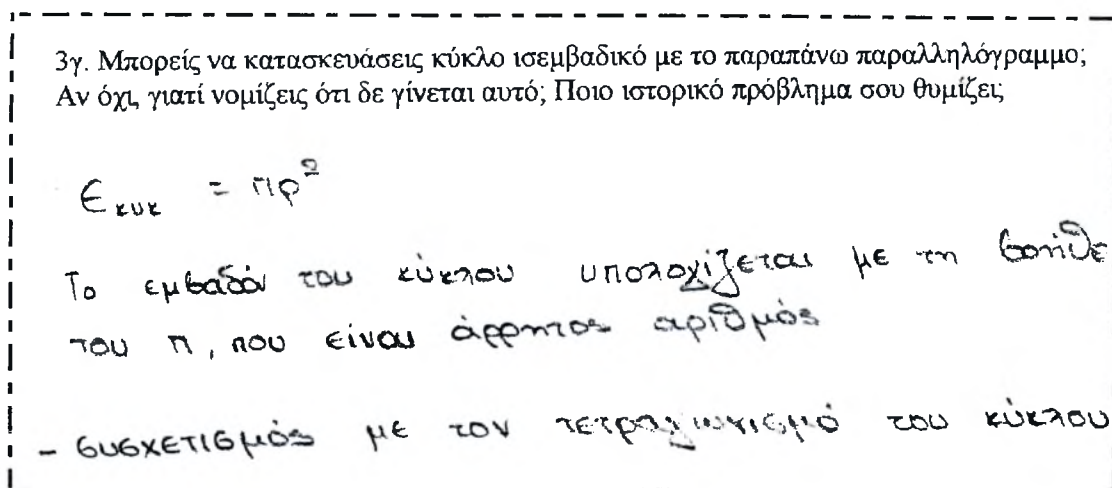 3γ. Μπορείς να κατασκευάσεις κύκλο ισεμβαδικό με το παραπάνω παραλληλόγραμμο;
Αν όχι, γιατί νομίζεις ότι δε γίνεται αυτό; Ποιο ιστορικό πρόβλημα σου θυμίζει;
Εκυκ = πρ²
Το εμβαδόν του κύκλου υπολογίζεται με τη βοήθε
του π, που είναι άρρητος αριθμός
- συσχετισμός με τον τετραγωνισμό του κύκλου